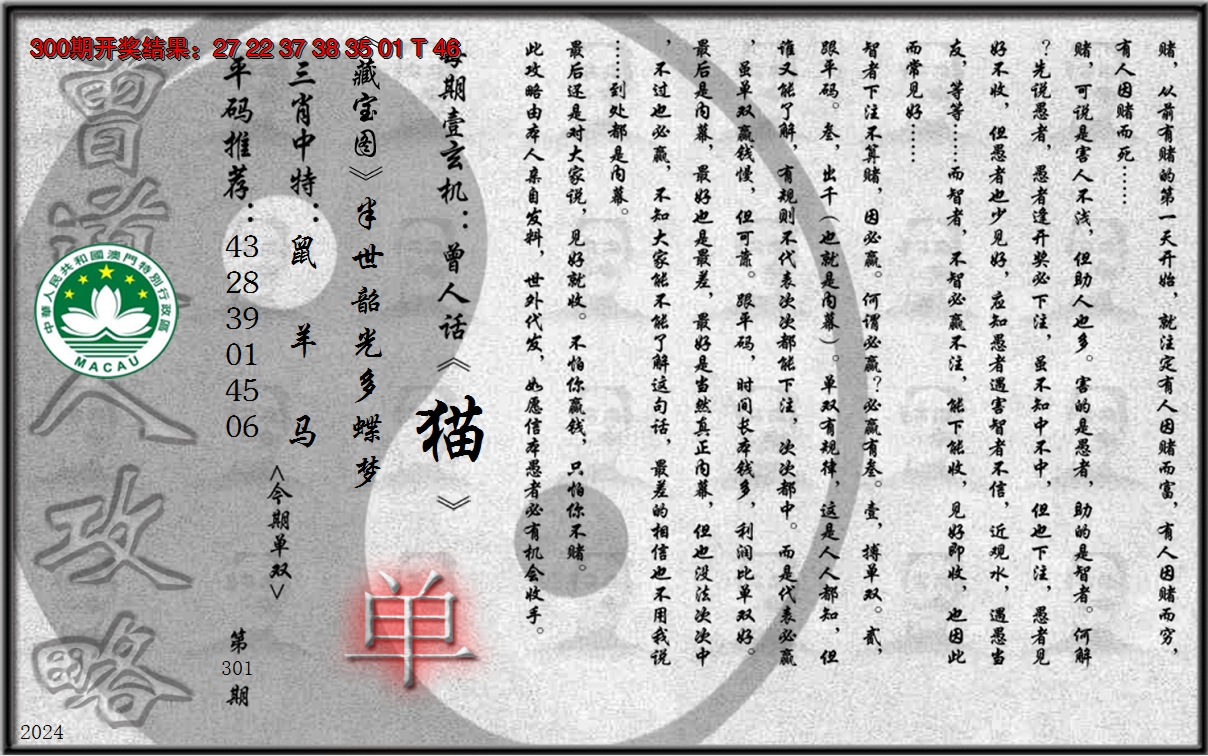 300期开奖结果：27 22 37 38 35 01 T 46
赌，从前有赌的第一天开始，就注定有人因赌而富，有人因赌而穷，
有人因赌而死……
赌，可说是害人不浅，但助人也多。害的是愚者，助的是智者。何解
？先说愚者，愚者逢开奖必下注，虽不知中不中，但也下注，愚者见
好不收，但愚者也少见好，应知愚者遇害智者不信，近观水，遇愚当
友，等等……而智者，不智必赢不注，能下能收，见好即收，也因此
而常见好……
智者下注不算赌，因必赢。何谓必赢？必赢有叁。壹，搏单双。贰，
跟平码。叁，出千（也就是内幕）。单双有规律，这是人人都知，但
谁又能了解，有规则不代表次次都能下注，次次都中。而是代表必赢
，虽单双赢钱慢，但可靠。跟平码，时间长本钱多，利润比单双好。
最后是内幕，最好也是最差，最好是当然真正内幕，但也没法次次中
，不过也必赢，不知大家能不能了解这句话，最差的相信也不用我说
……到处都是内幕。
最后还是对大家说，见好就收。不怕你赢钱，只怕你不赌。
此攻略由本人亲自发料，世外代发，如愿信本愚者必有机会收手。
每期壹玄机：曾人话《猫》
《藏宝图》半世韶光多蝶梦
三肖中特：鼠 羊 马
<今期单双>
单
平码推荐：43 28 39 01 45 06
第301期
曾道人攻略
中華人民共和國澳門特別行政區
MACAU
2024